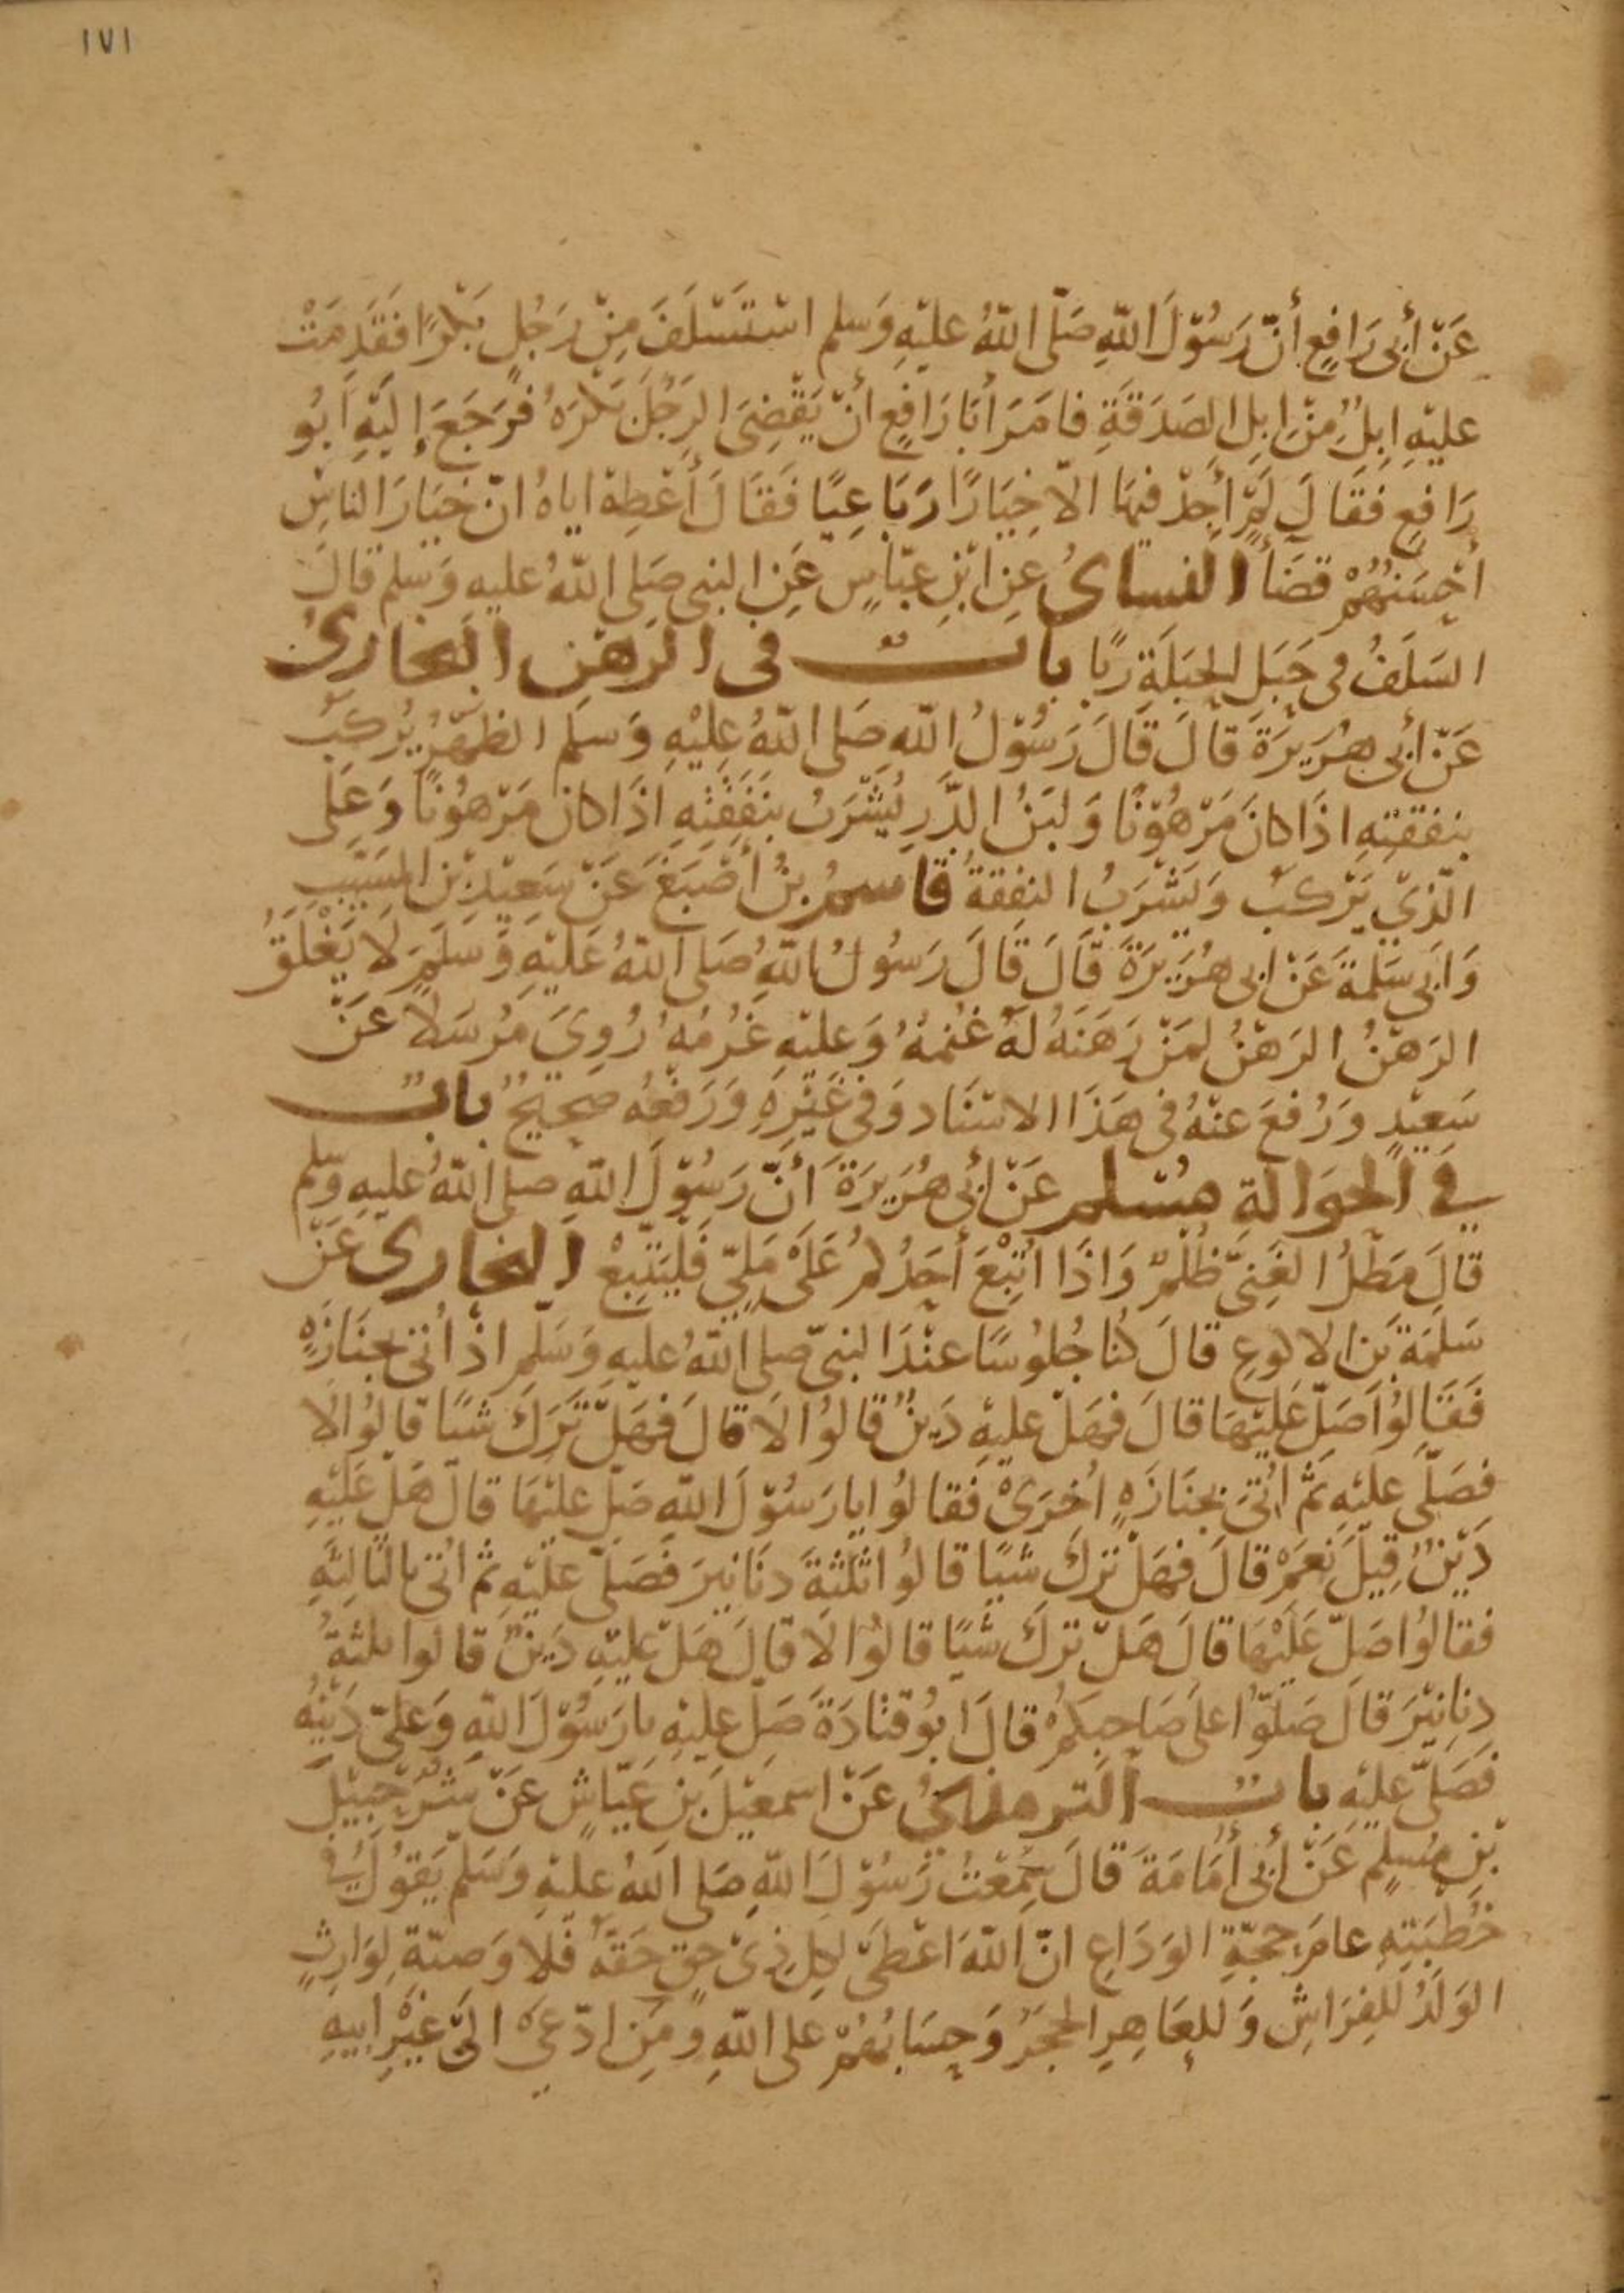 ١٧١
عَنْ أَبِي رَافِعٍ أَنّ رَسُوْلَ اللّهِ صَلّى اللّهُ عَليْهِ وَسلم اسْتَسْلَفَ مِنْ رَجُلٍ بَكْرًا فَقَدِمَتْ
عليْهِ اِبِلٌ مِنْ اِبِلِ الصَدَقَةِ فامَرَ أبَا رَافِعٍ أنْ يَقْضِىَ الرَجُلَ بَكْرَهُ فَرَجَعَ إليْهِ اَبُو
رَافِعٍ فقَالَ لَمْ أجِدْ فيهَا الاّ خِيَارًا رَبَاعِيًا فَقَالَ أعْطِهْ اياهُ انّ خيَارَ الناسِ
أحْسَنُهُمْ قضَأ النساىُ عنِ ابْنِ عبّاسٍ عَنِ النبي صَلى اللّهُ عليهِ وَسلم قالَ
السَلَفُ فى حَبَلِ الحَبَلَةِ رِبًا بابٌ فى الرهْنِ البخارىُ
عَنْ أبى هُرَيرَةَ قالَ قَالَ رَسُوْلُ اللّهِ صَلى اللّهُ عليْهِ وَسلم الظهْرُ يُركبُ
بنفقتِهِ اذَا كانَ مَرْهُوْنًا وَلبَنُ الدَّرِ يُشْرَبُ بنَفَقتِهِ اذَا كانَ مَرْهُونًا وَعلى
الّذِيْ يَرْكبُ وَيَشْرَبُ النفقةُ قاسمُ بنُ أصْبَغَ عَنْ سَعِيْدِ بْنِ المسَيّبِ
وَابى سَلمةَ عَنْ ابى هُرَيرَةَ قَالَ قَالَ رَسُولُ اللّهِ صَلى اللّهُ عَليْهِ وَسَلمَ لَا يَغْلَقُ
الرَهْنُ الرَهْنُ لمَنْ رَهَنَهُ لهُ غُنمُهُ وَعليْهِ غُرْمُهُ رُوِىَ مُرْسَلًا عَنْ
سَعِيْدٍ وَرُفعَ عنْهُ فى هَذَا الاسْنَاد وَفى غَيْرِهِ وَرَفْعُه صَحِيحٌ بابٌ
في الحَوالةِ مسْلم عَنْ أبى هُرَيرَةَ أنّ رَسُوْلَ اللّهِ صلى اللّهُ عليهِ وَسلم
قالَ مَطْلُ الغَنِىِّ ظُلمٌ وَاذَا اُتْبِعَ أحَدُكمْ عَلَى مَلِىّ فَليَتْبَعْ البخارى عَنْ
سَلَمَةَ بَن الاكوعِ قالَ كُنا جُلوُسًا عنْدَ النبىّ صلى اللّهُ عليهِ وَسَلم اذْ أُتى بجنَازَهٍ
فَقَالوُا صَلّ عَليْهَا قالَ فهَلْ عليْهِ دَينٌ قالوُا لَا قالَ فهَلْ تَرَكَ شيًا قالوُا لَا
فصَلّى عليْهِ ثُمّ اُتىَ بجنَازَهٍ اُخرَىْ فَقالوُا يا رَسُوْلَ اللّهِ صَلّ عليْهَا قالَ هَلْ عَليْهِ
دَيْنٌ قِيْلَ نَعَمْ قالَ فهَلْ ترَكَ شيًا قالوُا ثلثةَ دنَانيرَ فَصَلّى عليْهِ ثم اُتى بالثالِثهِ
فقالوُا صَلّ عَلَيْهَا قالَ هَلْ ترَكَ شيًا قالوُا لَا قالَ هَلْ عليْهِ دَينٌ قالوا ثلثةُ
دنانِيْرَ قالَ صَلوّا علَى صَاحِبكمُ قالَ ابُو قتَادَةَ صَلّ عليْهِ يا رَسُوْلَ اللّهِ وَعَلىّ دَيْنُهُ
فَصَلّى عليْهِ بابٌ الترمذىُ عَنْ اسمعِيْلَ بنِ عَيّاشٍ عَنْ شُرَحْبيْلَ
بْنِ مُسلِمٍ عَنْ أبى أُمَامَةَ قالَ سَمِعْتُ رَسُوْلَ اللّهِ صَلى اللّهُ عليْهِ وَسَلم يَقوُلُ في
خُطْبَتِهِ عامَ حَجّةِ الوَدَاعِ انّ اللّهَ اعْطىَ لكلِ ذِىْ حقٍ حَقهُ فَلا وَصيّةَ لِوَارِثٍ
الوَلَدُ للفِرَاشِ وَللعَاهِرِ الحجَرُ وَحِسَابُهُمْ على اللّهِ وَمَنِ ادّعىَ الىَ غَيْرِ ابيهِ